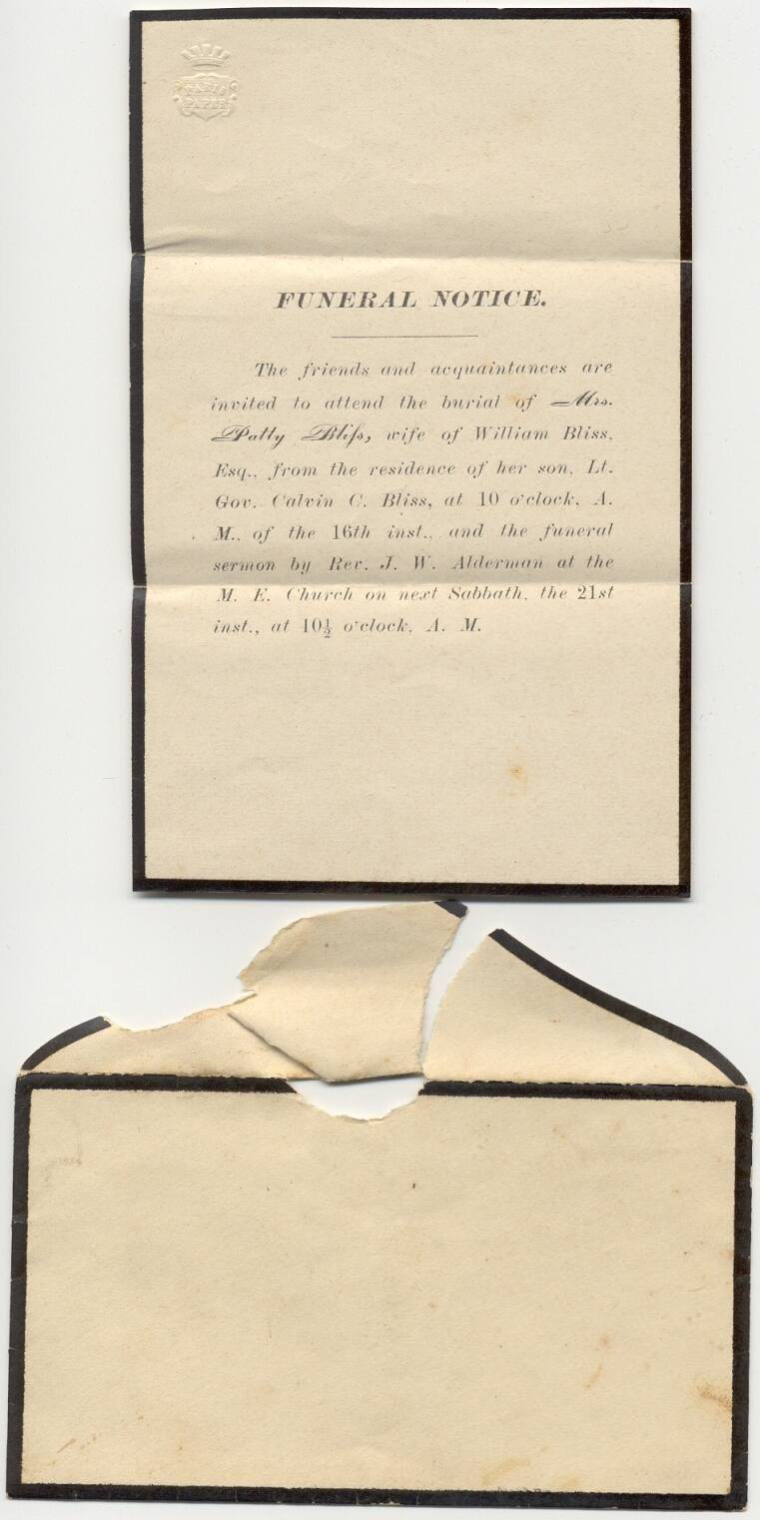 PARIS
PAPER
FUNERAL NOTICE.
The friends and acquaintances are
invited to attend the burial of Mrs.
Patty Bliſs, wife of William Bliss,
Esq., from the residence of her son, Lt.
Gov. Calvin C. Bliss, at 10 o'clock, A.
M., of the 16th inst., and the funeral
sermon by Rev. J. W. Alderman at the
M. E. Church on next Sabbath, the 21st
inst., at 10½ o'clock, A. M.